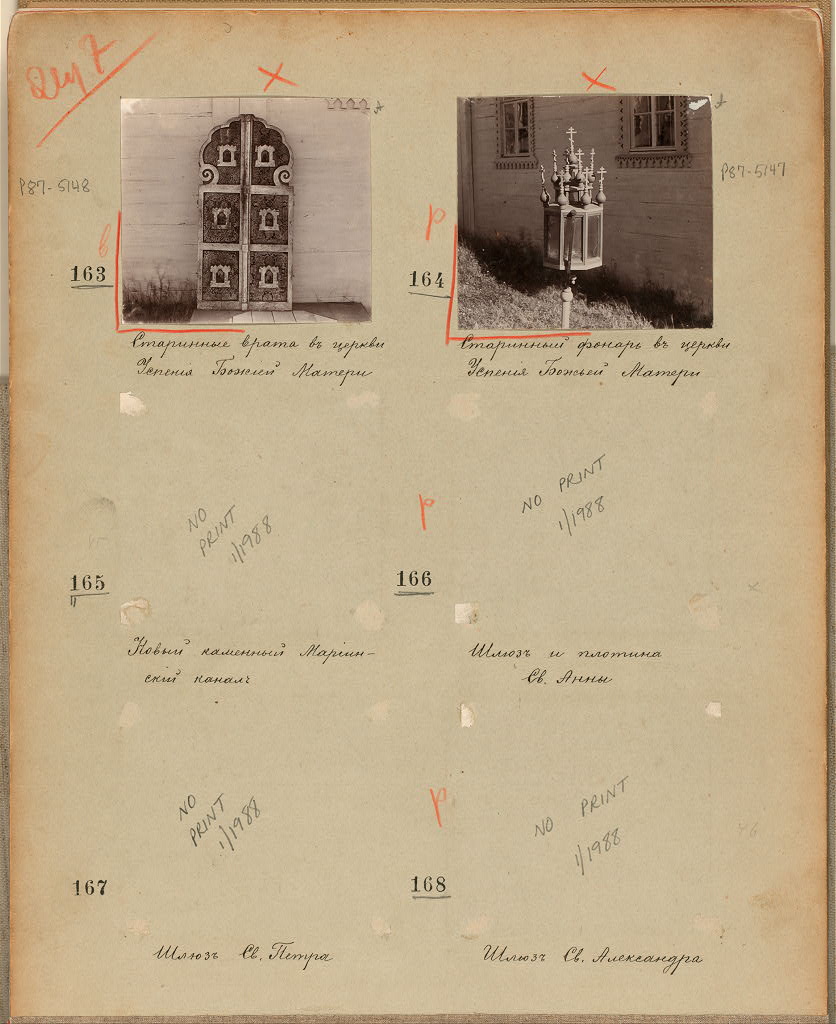 P87-5148
P87-5147
в
р
163
164
Старинные врата въ церкви
Успенія Божіей Матери
Старинный фонарь въ церкви
Успенія Божьей Матери
NO
PRINT
1/1988
р
NO PRINT
1/1988
165
166
Новый каменный Маріин-
скій каналъ
Шлюзъ и плотина
Св. Анны
NO
PRINT
1/1988
р
NO PRINT
1/1988
167
168
Шлюзъ Св. Петра
Шлюзъ Св. Александра